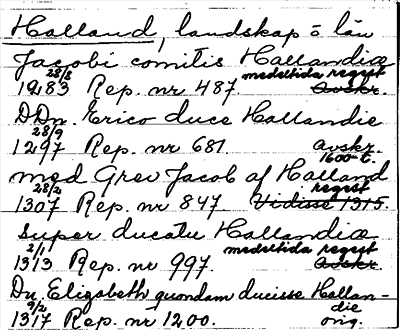 Halland, landskap o län
Jacobi comitis Hallandiæ
28/8 medeltida regest
1283 Rep. nr 487. Avskr.
DDn. Erico duce Hallandie
28/9
1297 Rep. nr 681. avskr.
1600-t.
med Grev Jacob af Halland
28/2 regest
1307 Rep. nr 847 Vidisse 1315.
super ducatu Hallandiæ
2/1 medeltida regest
1313 Rep. nr 997. Avskr.
Dn. Elizabeth quondam ducisse Hallan-
9/2 die
1317 Rep. nr 1200. orig.